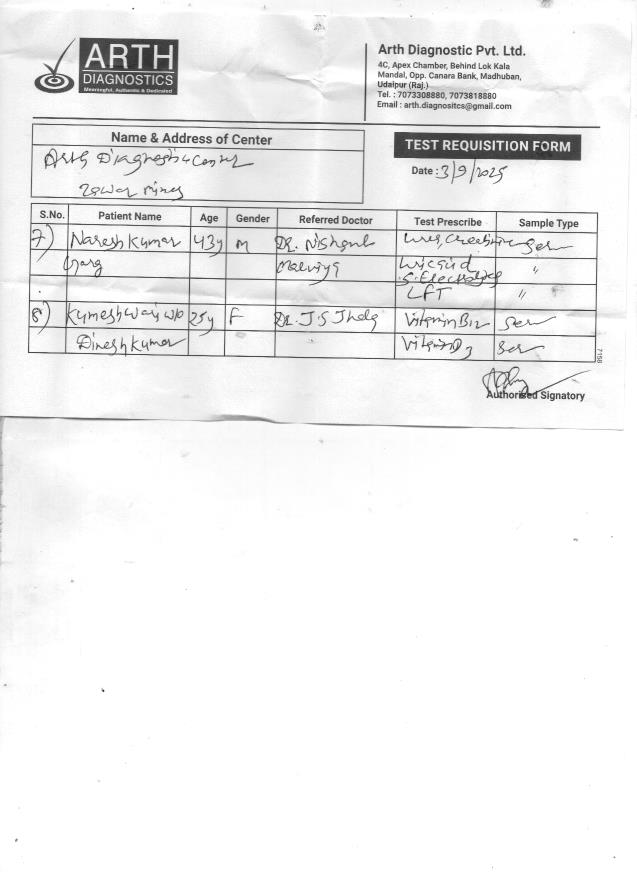 ARTH
DIAGNOSTICS
Meaningful, Authentic & Dedicated
Arth Diagnostic Pvt. Ltd.
4C, Apex Chamber, Behind Lok Kala
Mandal, Opp. Canara Bank, Madhuban,
Udaipur (Raj.)
Tel. : 7073308880, 7073818880
Email : arth.diagnositcs@gmail.com
Name & Address of Center
Arth Diagnostic Center
Zawar Mines
TEST REQUISITION FORM
Date : 3/9/2025
S.No. Patient Name Age Gender Referred Doctor Test Prescribe Sample Type
7) Naresh Kumar 43y M DR. Nishant Urea, Creatinine Ser
Garg Malviya Uric Acid "
S. Electrolytes
LFT "
8) Kumeshwari w/o 25y F DR. J S Jhala Vitamin B12 Ser
Dinesh Kumar Vitamin D3 Ser
7158
Authorised Signatory